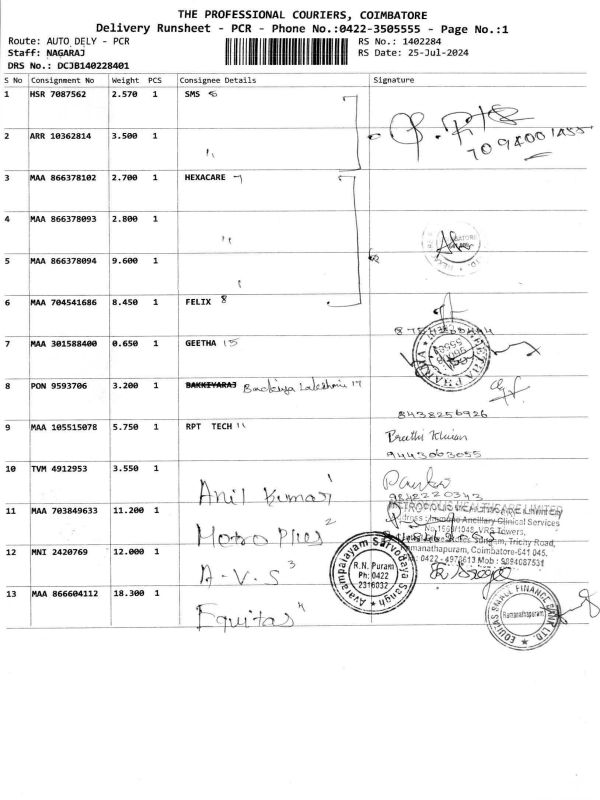 THE PROFESSIONAL COURIERS, COIMBATORE
Delivery Runsheet - PCR - Phone No.:0422-3505555 - Page No.:1
Route: AUTO DELY - PCR RS No.: 1402284
Staff: NAGARAJ RS Date: 25-Jul-2024
DRS No.: DCJB140228401
S No Consignment No Weight PCS Consignee Details Signature
1 HSR 7087562 2.570 1 SMS 6
2 ARR 10362814 3.500 1 "
7094001455
3 MAA 866378102 2.700 1 HEXACARE 7
4 MAA 866378093 2.800 1 "
5 MAA 866378094 9.600 1
6 MAA 704541686 8.450 1 FELIX 8
7 MAA 301588400 0.650 1 GEETHA 15
8 PON 9593706 3.200 1 BAKKIYARAJ Backiya Lakshmi 17
8438256926
9 MAA 105515078 5.750 1 RPT TECH 11
9443063055
10 TVM 4912953 3.550 1
Anil Kumar 1
9842220343
11 MAA 703849633 11.200 1
METROPOLIS HEALTHCARE LIMITED
Ancillary Clinical Services
VRS Towers,
Sungam, Trichy Road,
Ramanathapuram, Coimbatore-641 045.
Ph: 0422 - 4978613 Mob : 9894087531
Metropolies 2
12 MNI 2420769 12.000 1
A.V.S 3
Avarampalayam Sarvodaya Sangh
R.N. Puram
Ph: 0422
2316032
13 MAA 866604112 18.300 1
Equitas 4
EQUITAS SMALL FINANCE BANK LTD.
Ramanathapuram